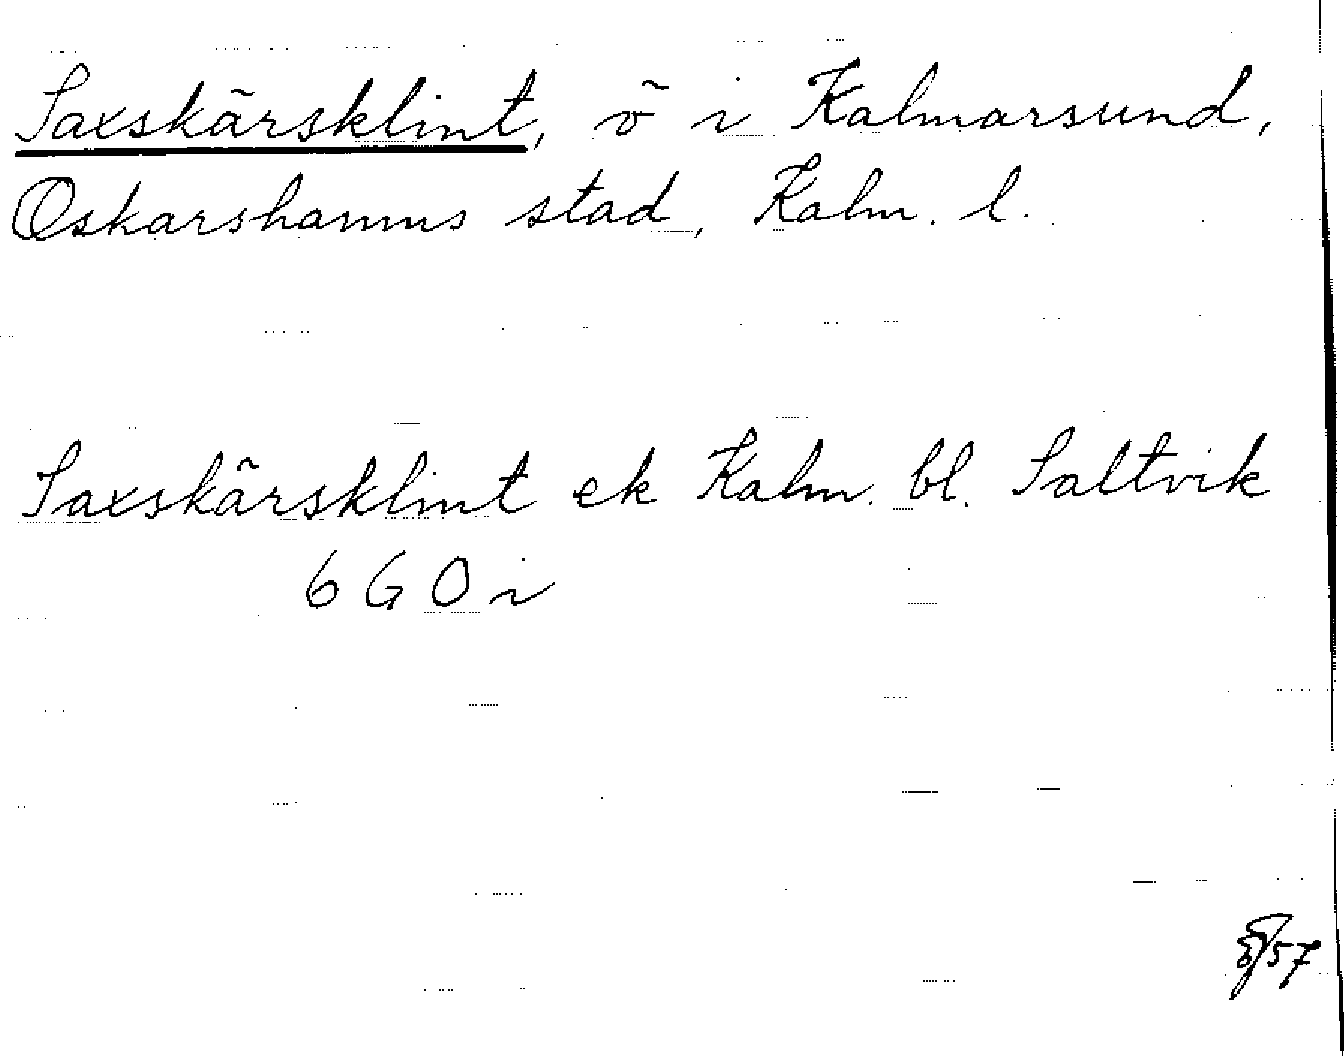 Saxskärsklint, ö i Kalmarsund,
Oskarshamns stad, Kalm. l.
Saxskärsklint ek Kalm. bl. Saltvik
6 G O i